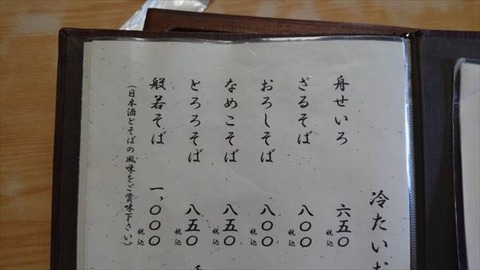 冷たいお
舟せいろ 六五〇 税込
ざるそば 八〇〇 税込
おろしそば 八〇〇 税込
なめこそば 八五〇 税込
とろろそば 八五〇 税込
般若そば 一、〇〇〇 税込
(日本酒とそばの風味をご賞味下さい)